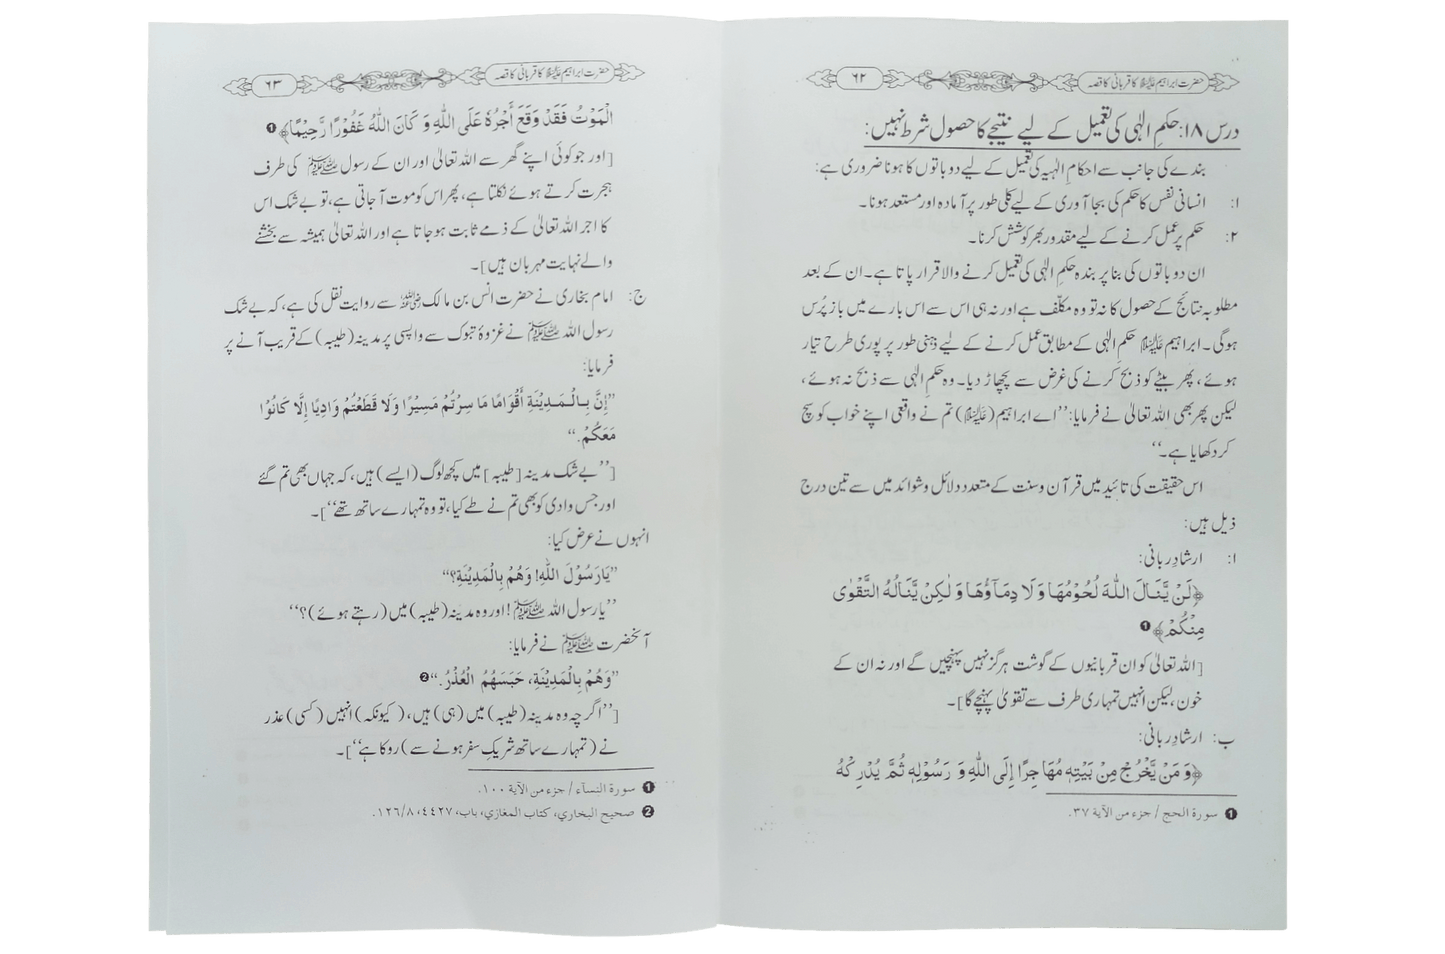 حضرت ابراہیم علیہ السلام کا قربانی کا قصہ
۶۲
درس ۱۸: حکمِ الٰہی کی تعمیل کے لیے نتیجے کا حصول شرط نہیں:
بندے کی جانب سے احکامِ الٰہیہ کی تعمیل کے لیے دو باتوں کا ہونا ضروری ہے:
۱: انسانی نفس کا حکم کی بجا آوری کے لیے کلی طور پر آمادہ اور مستعد ہونا۔
۲: حکم پر عمل کرنے کے لیے مقدور بھر کوشش کرنا۔
ان دو باتوں کی بنا پر بندہ حکمِ الٰہی کی تعمیل کرنے والا قرار پاتا ہے۔ ان کے بعد
مطلوبہ نتائج کے حصول کا نہ تو وہ مکلّف ہے اور نہ ہی اس سے اس بارے میں باز پُرس
ہوگی۔ ابراہیم علیہ السلام حکمِ الٰہی کے مطابق عمل کرنے کے لیے ذہنی طور پر پوری طرح تیار
ہوئے، پھر بیٹے کو ذبح کرنے کی غرض سے پچھاڑ دیا۔ وہ حکمِ الٰہی سے ذبح نہ ہوئے،
لیکن پھر بھی اللہ تعالیٰ نے فرمایا: ’’اے ابراہیم (علیہ السلام) تم نے واقعی اپنے خواب کو سچ
کر دکھایا ہے۔‘‘
اس حقیقت کی تائید میں قرآن وسنت کے متعدد دلائل وشواہد میں سے تین درج
ذیل ہیں:
۱: ارشادِ ربانی:
﴿لَنْ یَّنَالَ اللّٰہَ لُحُوْمُھَا وَ لَا دِمَآؤُھَا وَ لٰکِنْ یَّنَالُہُ التَّقْوٰی
مِنْکُمْ﴾ ❶
[اللہ تعالیٰ کو ان قربانیوں کے گوشت ہرگز نہیں پہنچیں گے اور نہ ان کے
خون، لیکن انہیں تمہاری طرف سے تقویٰ پہنچے گا]۔
ب: ارشادِ ربانی:
﴿وَ مَنْ یَّخْرُجْ مِنْ بَیْتِہٖ مُھَاجِرًا اِلَی اللّٰہِ وَ رَسُوْلِہٖ ثُمَّ یُدْرِکْہُ
❶ سورة الحج / جزء من الآیة ۳۷.
حضرت ابراہیم علیہ السلام کا قربانی کا قصہ
۶۳
الْمَوْتُ فَقَدْ وَقَعَ أَجْرُہٗ عَلَی اللّٰہِ وَ کَانَ اللّٰہُ غَفُوْرًا رَّحِیْمًا﴾ ❶
[اور جو کوئی اپنے گھر سے اللہ تعالیٰ اور ان کے رسول ﷺ کی طرف
ہجرت کرتے ہوئے نکلتا ہے، پھر اس کو موت آ جاتی ہے، تو بے شک اس
کا اجر اللہ تعالیٰ کے ذمے ثابت ہو جاتا ہے اور اللہ تعالیٰ ہمیشہ سے بخشنے
والے نہایت مہربان ہیں]۔
ج: امام بخاری نے حضرت انس بن مالک رضی اللہ عنہ سے روایت نقل کی ہے، کہ بے شک
رسول اللہ ﷺ نے غزوۂ تبوک سے واپسی پر مدینہ (طیبہ) کے قریب آنے پر
فرمایا:
’’إِنَّ بِالْمَدِیْنَةِ أَقْوَامًا مَا سِرْتُمْ مَسِیْرًا وَلَا قَطَعْتُمْ وَادِیًا إِلَّا کَانُوْا
مَعَکُمْ.‘‘
[’’بے شک مدینہ [طیبہ] میں کچھ لوگ (ایسے) ہیں، کہ جہاں بھی تم گئے
اور جس وادی کو بھی تم نے طے کیا، تو وہ تمہارے ساتھ تھے‘‘]۔
انہوں نے عرض کیا:
’’یَارَسُوْلَ اللّٰہِ! وَھُمْ بِالْمَدِیْنَةِ؟‘‘
’’یا رسول اللہ ﷺ! اور وہ مدینہ (طیبہ) میں (رہتے ہوئے)؟‘‘
آنحضرت ﷺ نے فرمایا:
’’وَھُمْ بِالْمَدِیْنَةِ، حَبَسَھُمُ الْعُذْرُ.‘‘ ❷
[’’اگرچہ وہ مدینہ (طیبہ) میں (ہی) ہیں، (کیونکہ) انہیں (کسی) عذر
نے (تمہارے ساتھ شریکِ سفر ہونے سے) روکا ہے‘‘]۔
❶ سورة النسآء / جزء من الآیة ۱۰۰.
❷ صحیح البخاري، کتاب المغازي، باب، ۴۴۲۷، ۸/۱۲۶.